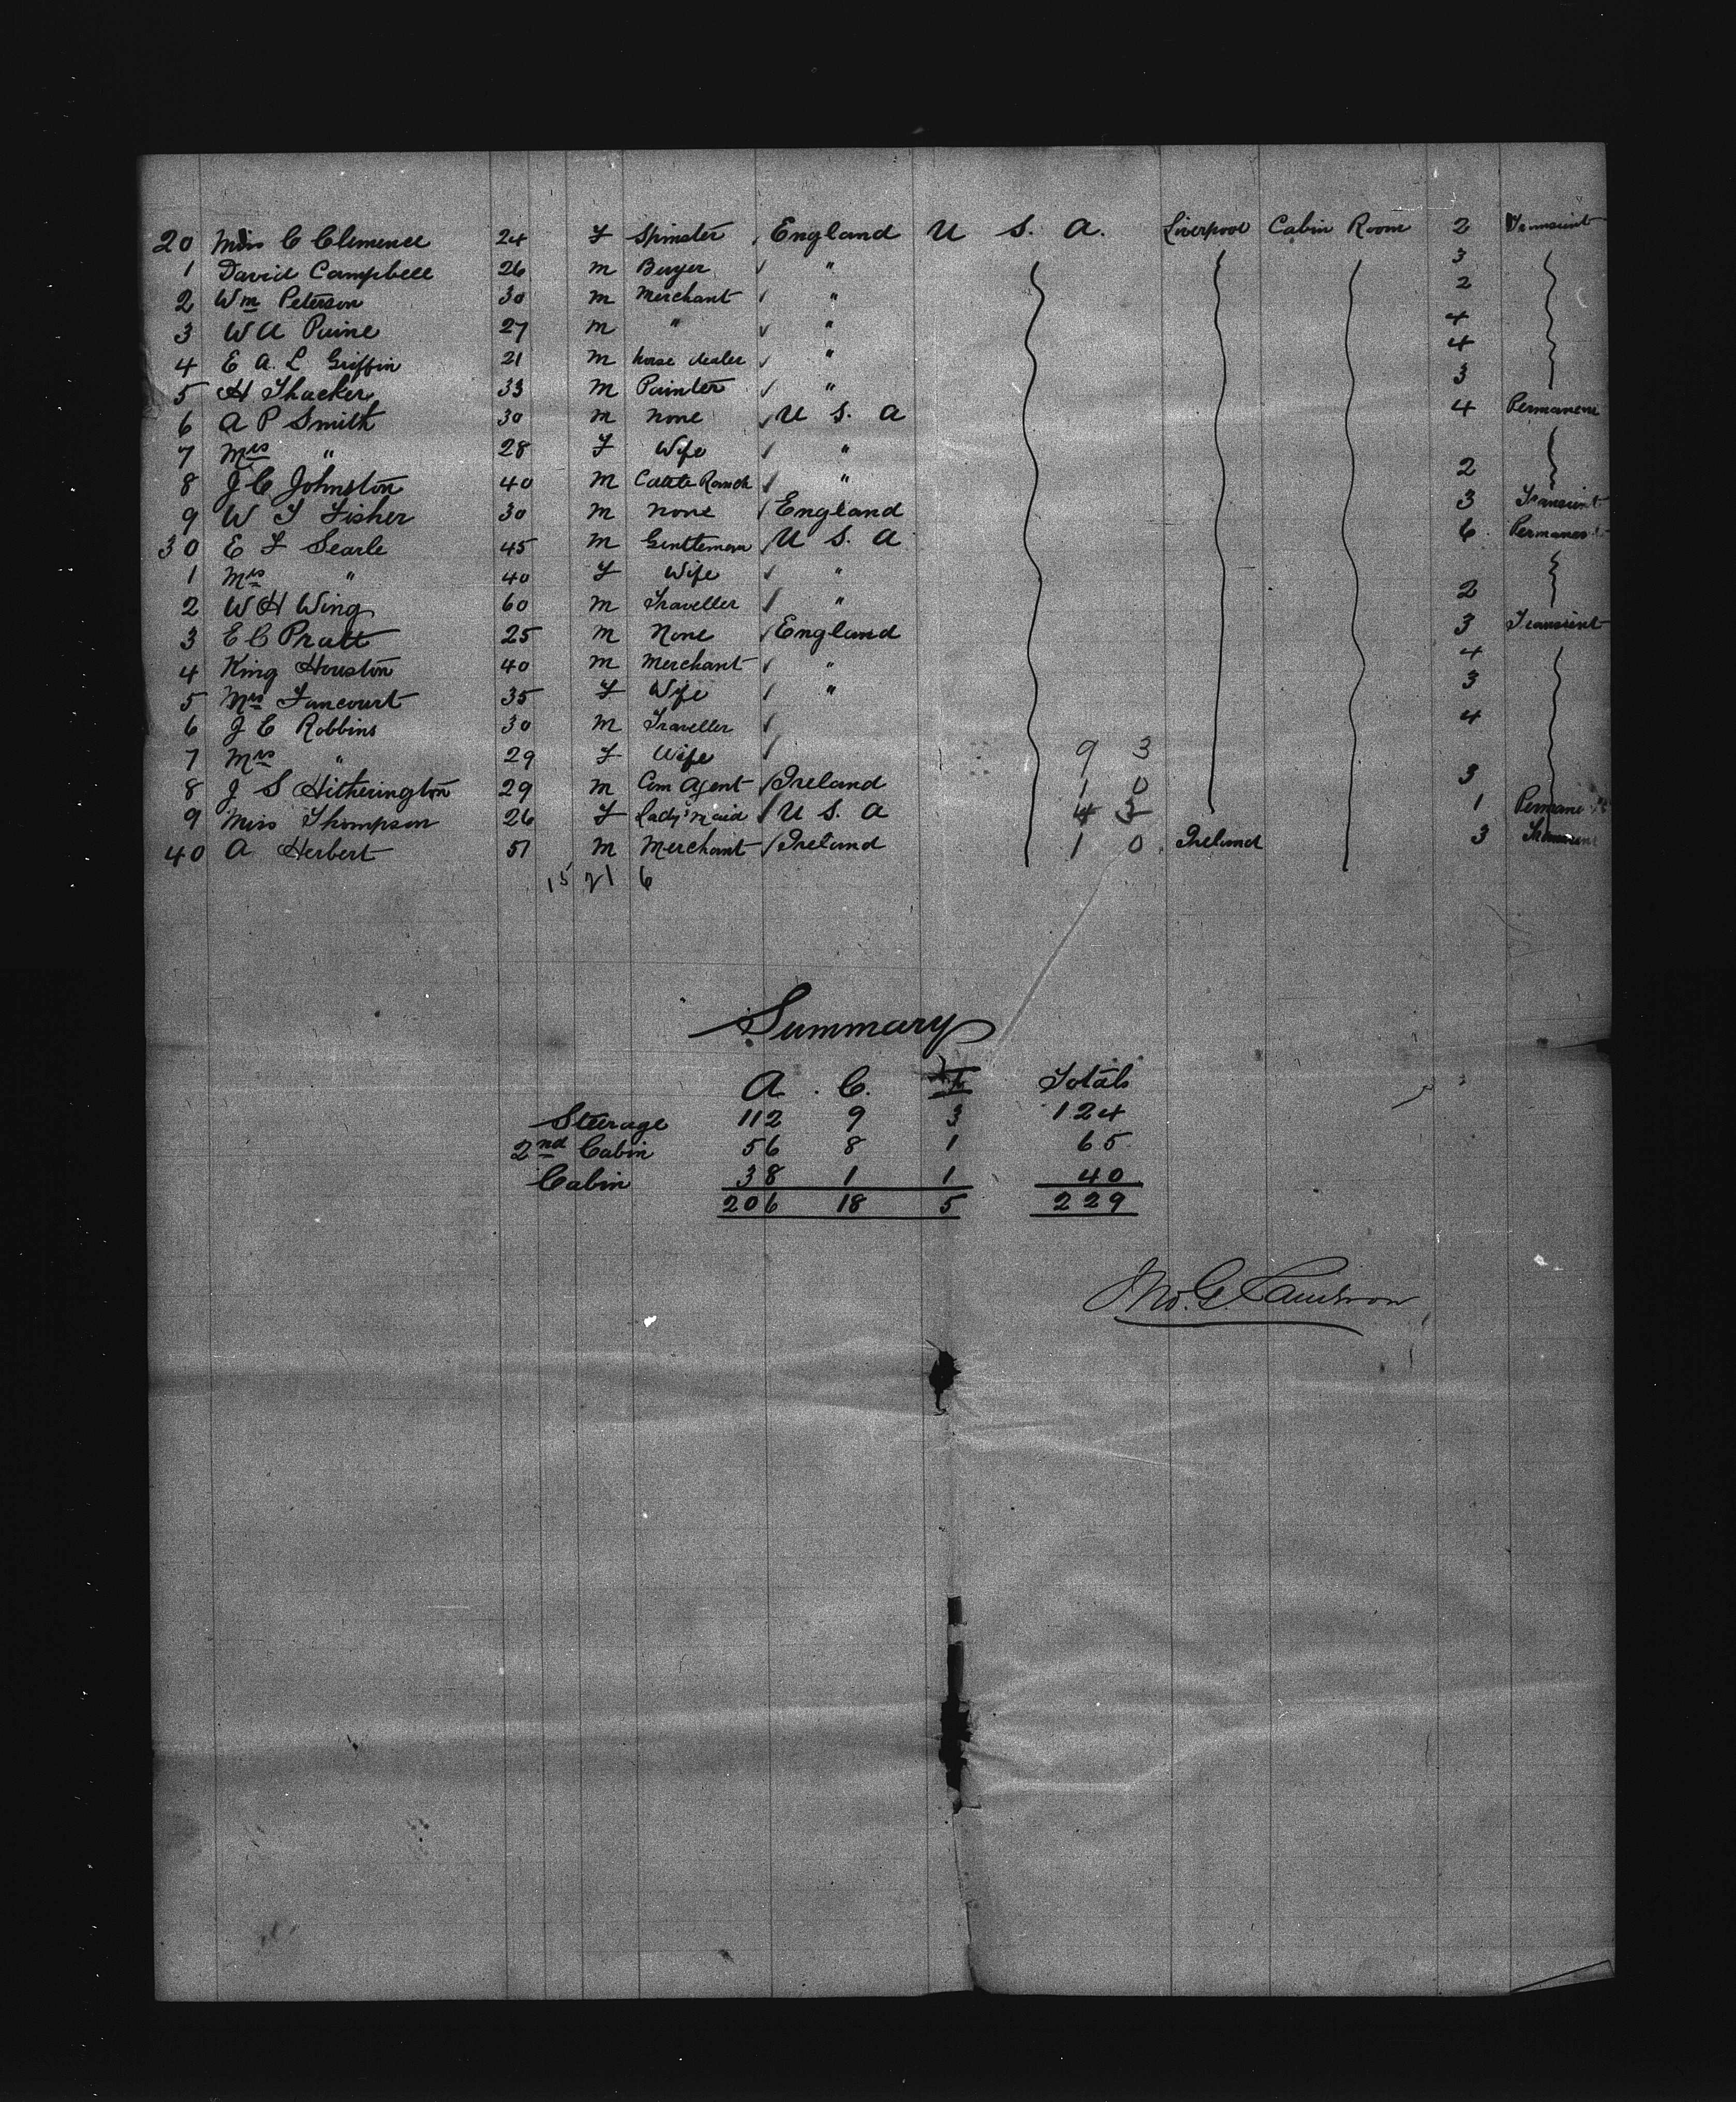 20 Miss C Clemence 24 F Spinster England U S. A. Liverpool Cabin Room 2 Transient
1 David Campbell 26 m Buyer " 3
2 Wm Peterson 30 m Merchant " 2
3 W A Paine 27 m " " 4
4 E A. L Griffin 21 m horse dealer " 4
5 H Thacker 33 m Painter " 3
6 A P Smith 30 m none U S. A 4 Permanent
7 Mrs " 28 F Wife "
8 J C Johnston 40 m Cattle Ranch " 2
9 W T Fisher 30 m none England 3 Transient
30 E F Searle 45 m Gentleman U S. A 6 Permanent
1 Mrs " 40 F Wife "
2 W H Wing 60 m Traveller " 2
3 E C Pratt 25 m None England 3 Transient
4 King Houston 40 m Merchant " 4
5 Mrs Fancourt 35 F Wife " 3
6 J E Robbins 30 m Traveller 4
7 Mrs " 29 F Wife 9 3
8 J S Hitherington 29 m Com Agent Ireland 1 0 3
9 Miss Thompson 26 F Lady's Maid U S. A 4 1
40 A Herbert 51 m Merchant Ireland 1 0 Ireland 3
15 21 6
Summary
A. C. Totals
Steerage 112 9 3 124
2nd Cabin 56 8 1 65
Cabin 38 1 1 40
206 18 5 229
Jno. G